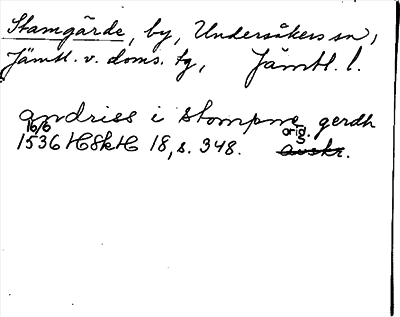 Stamgärde, by, Undersåkers sn,
Jämtl. v. doms. tg, Jämtl. l.
andriss i stompme gerdh
16/6 orig.
1536 HSkH 18, s. 348. avskr.